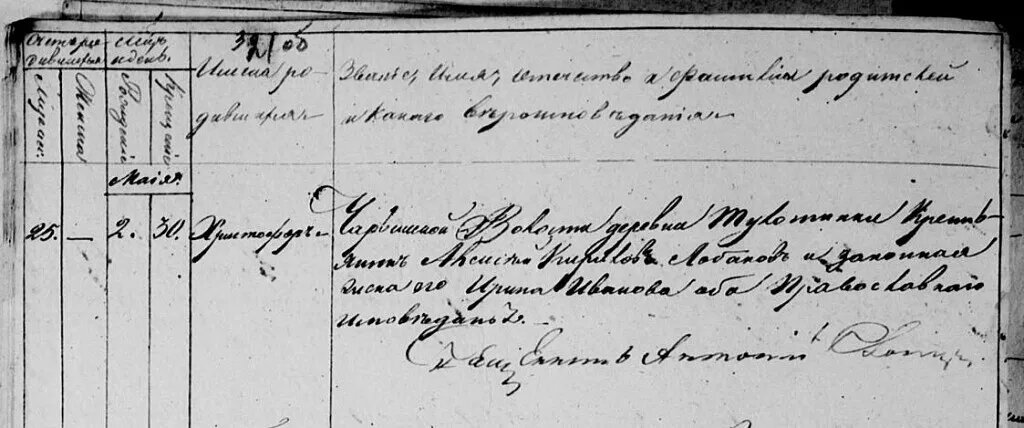 Счетъ ро-
дившихся
Мѣсяцъ
и день.
Имена ро-
дившихся
Званіе, имя, отечество и фамилія родителей
и какого вѣроисповѣданія
Мужеска.
Женска
Рожденія
Крещенія
Маія.
25.
—
2.
30.
Христофоръ
Волости деревни Крестья-
нинъ Алексѣй Лобановъ и законная
жена его Ирина Иванова оба Православнаго
исповѣданія.
Священникъ Антоній